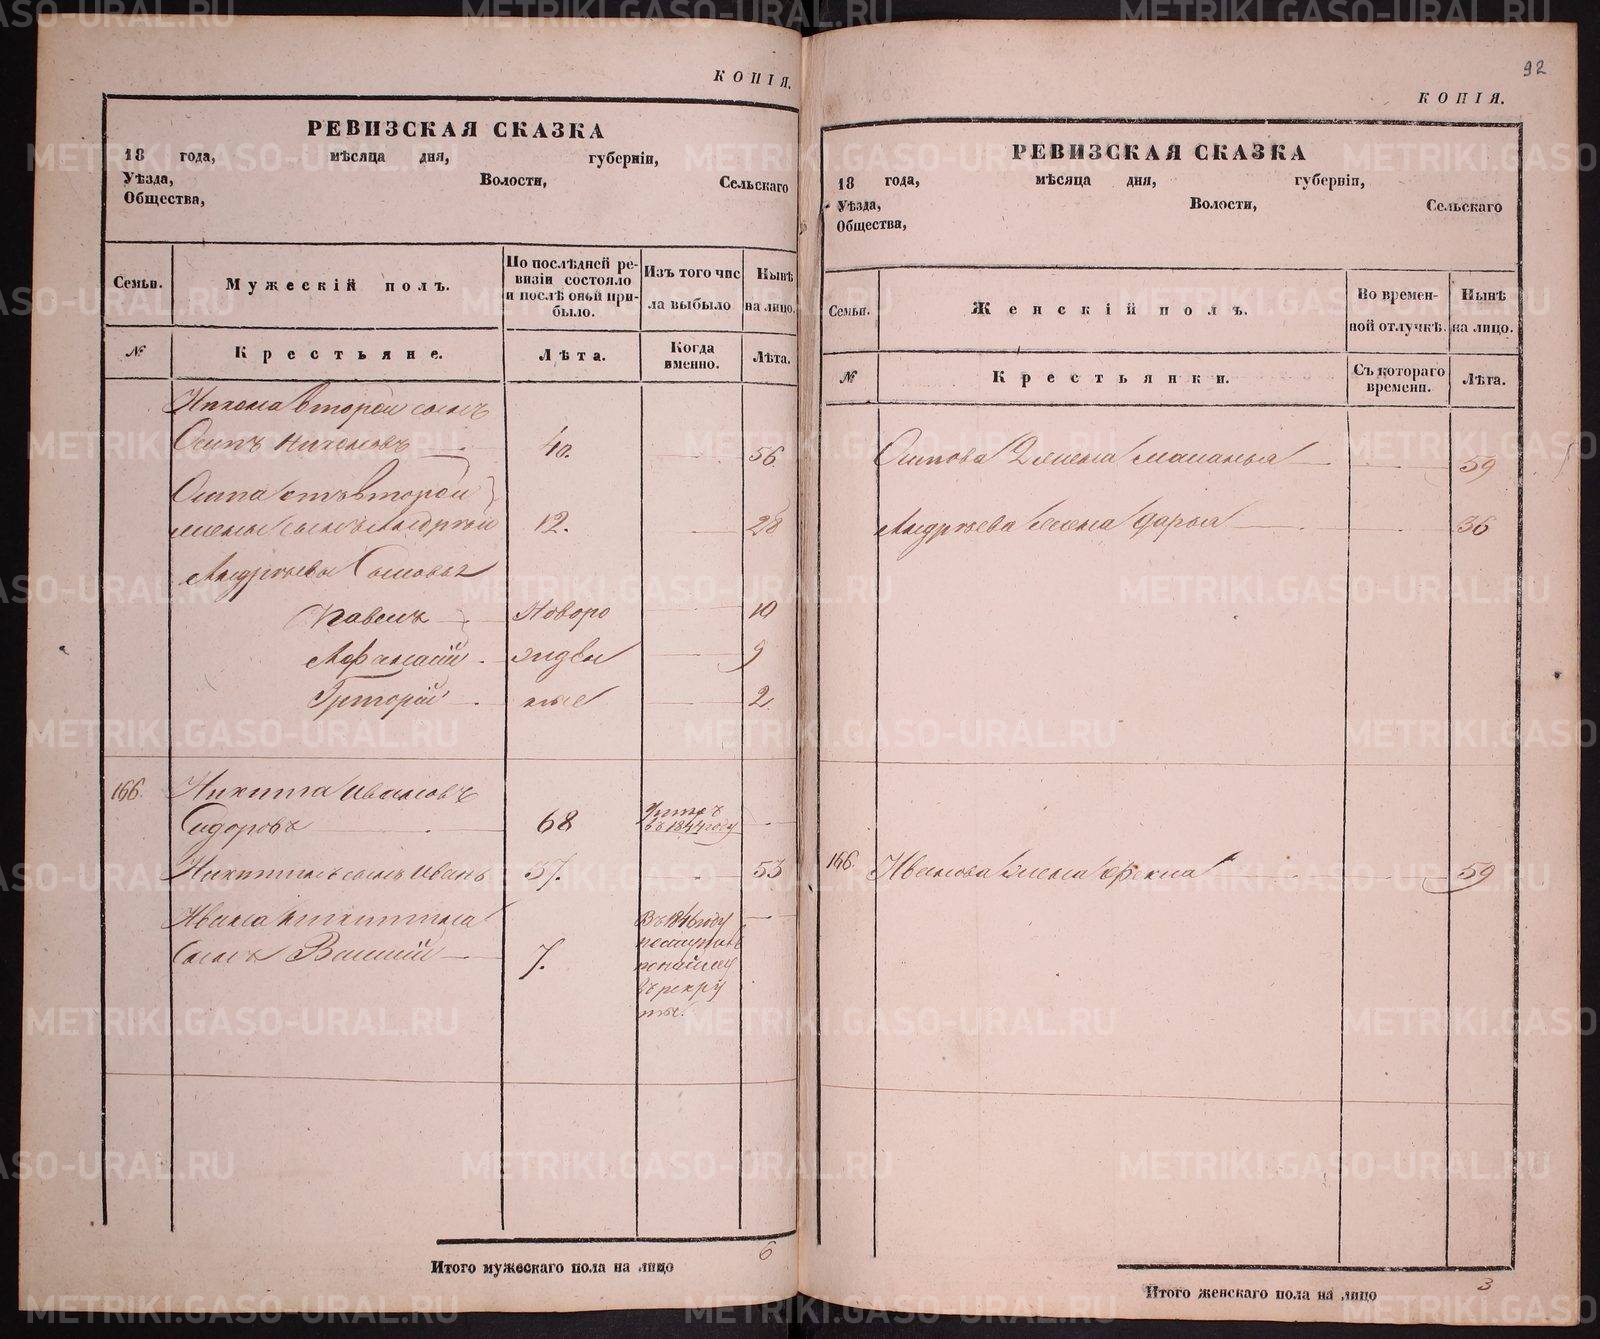 КОПІЯ.
РЕВИЗСКАЯ СКАЗКА
18 года, мѣсяца дня, губерніи,
Уѣзда, Волости, Сельскаго
Общества,
Семьи. Мужескій полъ. По послѣдней ревизіи состояло и послѣ оной прибыло. Изъ того числа выбыло Нынѣ на лицо.
№ Крестьяне. Лѣта. Когда именно. Лѣта.
второй сынъ
Осипъ 40. 56.
Осипа отъ второй
жены сынъ Андрей 12. 28
Андреева Сыновья
Павелъ Новоро 10
Афанасій жден 9
Григорій ные 2
166. Никита Ивановъ
Сидоровъ 68 Умеръ въ 1844 году
Никитинъ сынъ Иванъ 37. 53
Ивана Никитина
Сынъ Василій 7. Въ 1846 году
въ рекру
ты.
Итого мужескаго пола на лицо 6
92
КОПІЯ.
РЕВИЗСКАЯ СКАЗКА
18 года, мѣсяца дня, губерніи,
Уѣзда, Волости, Сельскаго
Общества,
Семьи. Женскій полъ. Во временной отлучкѣ. Нынѣ на лицо.
№ Крестьянки. Съ котораго времени. Лѣта.
Осипова жена Маланья 59
Андреева жена Дарья 36
166. Иванова жена 59
Итого женскаго пола на лицо 3
METRIKI.GASO-URAL.RU